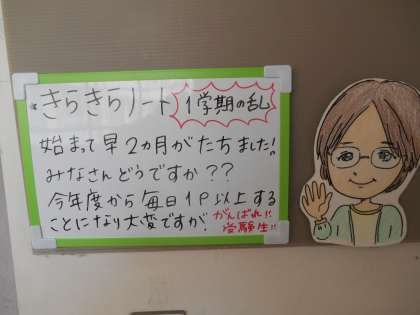 ★きらきらノート 1学期の乱
始まって早2カ月がたちました!
みなさんどうですか??
今年度から毎日1P以上する
ことになり大変ですが、がんばれ!!
受験生!!